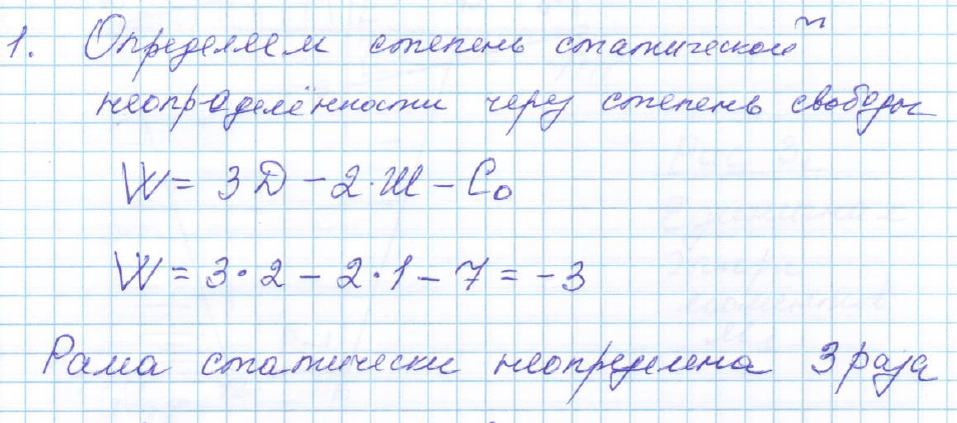 1. Определяем степень статической
неопределённости через степень свободы
W = 3Д - 2·Ш - С₀
W = 3·2 - 2·1 - 7 = -3
Рама статически неопределена 3 раза